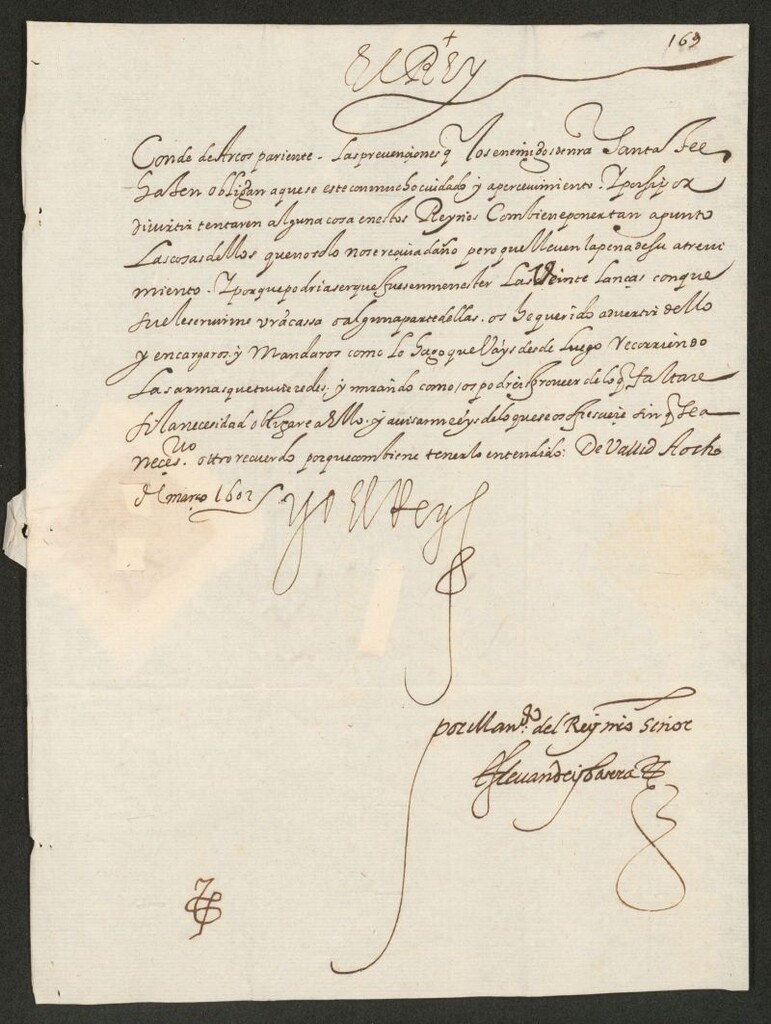 169
+
El Rey
Conde de Arcos pariente. Las prevenciones q los enemigos de nra Santa fee
hazen obligan a que se este con mucho cuidado y apercevimiento. Y por si por
divirtir tentaren alguna cosa en estos Reynos Combiene poner tan a punto
Las cosas dellos que no solo no se reçiva daño pero que lleven la pena de su atrevi
miento. Y porque podria ser que fuesen menester Las Veinte lanças con que
suele servirme vra cassa o alguna parte dellas. os he querido advertir dello
y encargaros, y Mandaros como lo hago que Vays desde Luego recorriendo
Las armas que tuvieredes, y mirando como os podreis Prover de lo q faltare
si la necesidad obligare a Ello. y avisarmeeys de lo que se os ofresciere sin q sea
neces.rio ottro recuerdo porque combiene tenerlo entendido: De Vallid A ocho
de março 1602
yo El Rey
por Man.do del Rey nro Señor
Estevan de ybarra